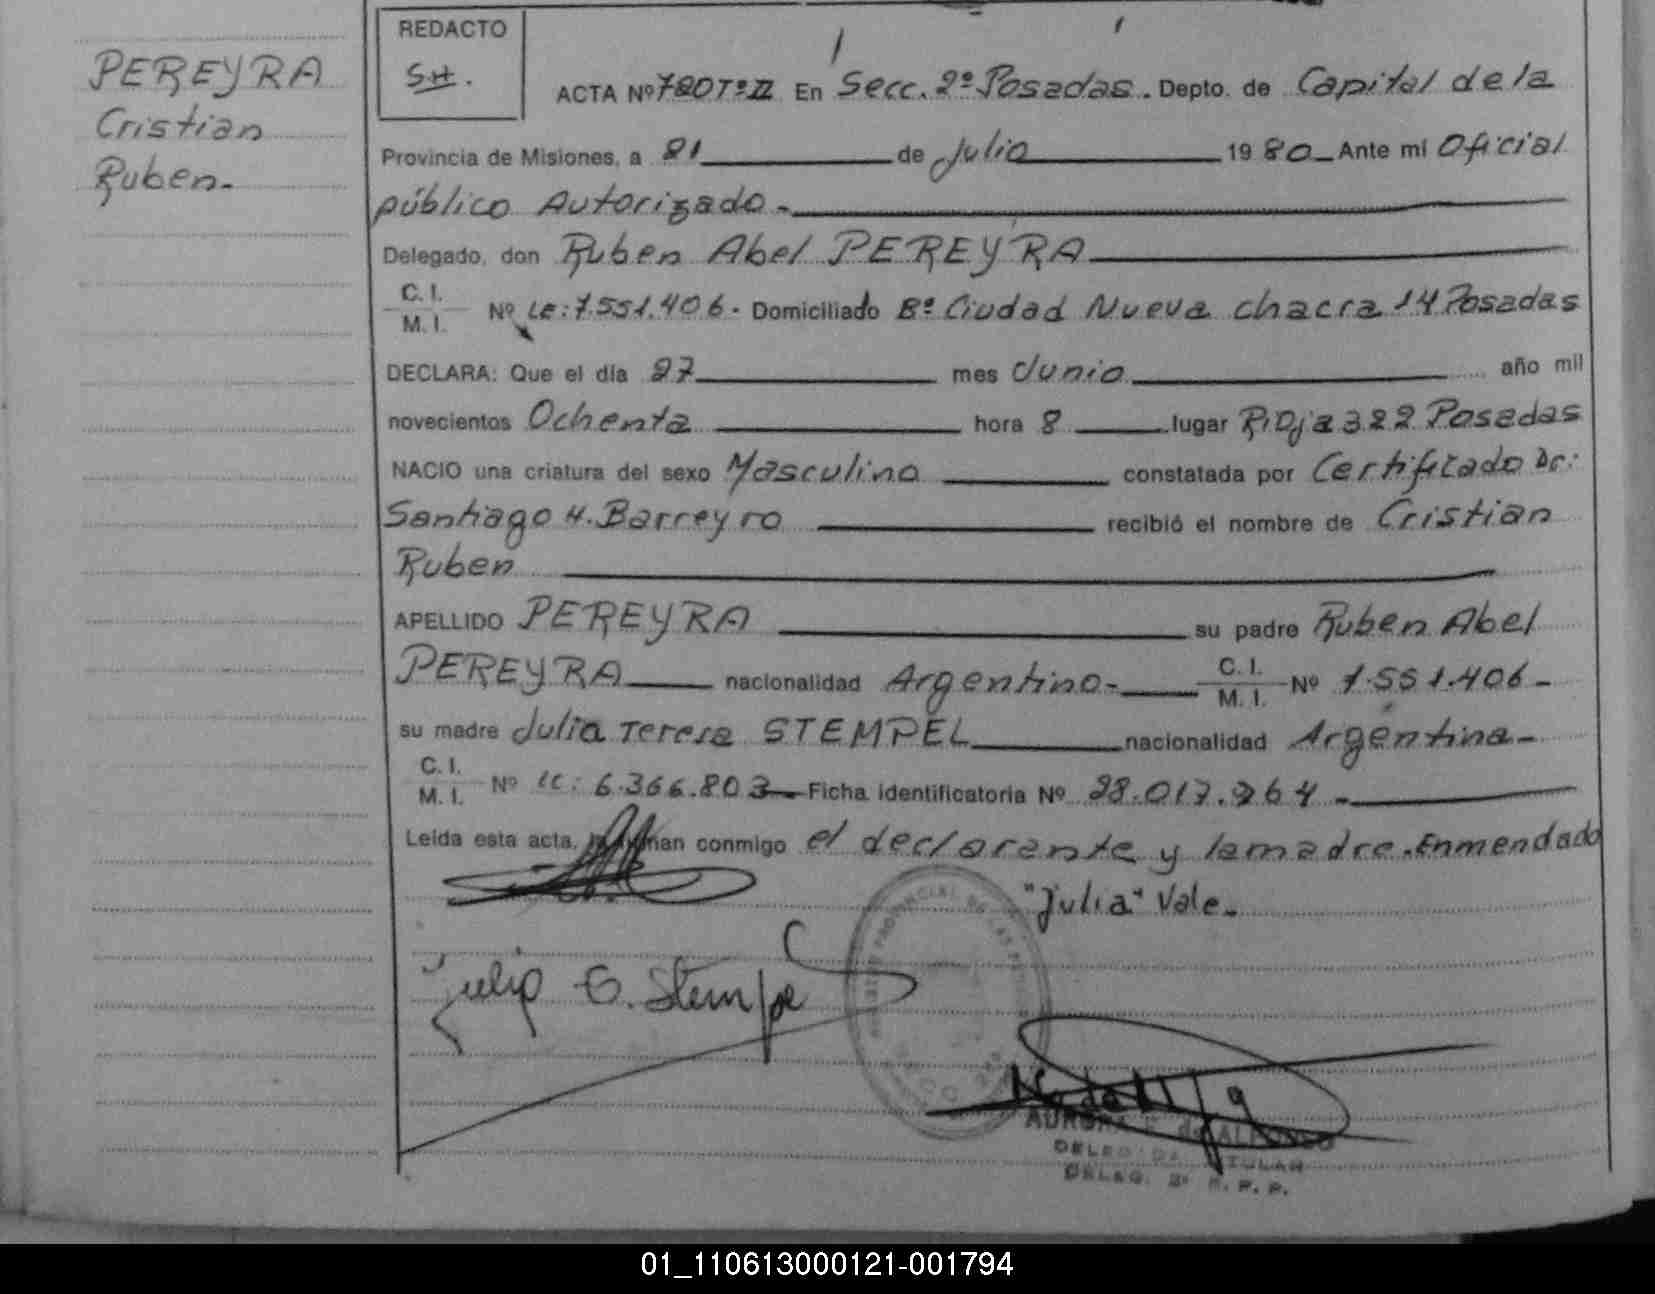 PEREYRA
Cristian
Ruben.-
REDACTO
S.H.
ACTA Nº 780 Tº II En Secc. 2º Posadas. Depto. de Capital de la
Provincia de Misiones, a 21 de Julio 1980 Ante mi Oficial
público Autorizado.-
Delegado, don Ruben Abel PEREYRA
C. I.
M. I. Nº LE: 7.551.406. Domiciliado Bº Ciudad Nueva chacra 14 Posadas
DECLARA: Que el día 27 mes Junio año mil
novecientos Ochenta hora 8 lugar Rioja 322 Posadas
NACIO una criatura del sexo Masculino constatada por Certificado Dr:
Santiago H. Barreyro recibió el nombre de Cristian
Ruben
APELLIDO PEREYRA su padre Ruben Abel
PEREYRA nacionalidad Argentino.- C. I. M. I. Nº 7.551.406-
su madre Julia Teresa STEMPEL nacionalidad Argentina-
C. I.
M. I. Nº LC: 6.366.803 Ficha identificatoria Nº 28.017.264.-
Leída esta acta, conmigo el declarante y la madre. Enmendado
"Julia" Vale.-
DELEG. 2ª R. P. P.
01_110613000121-001794